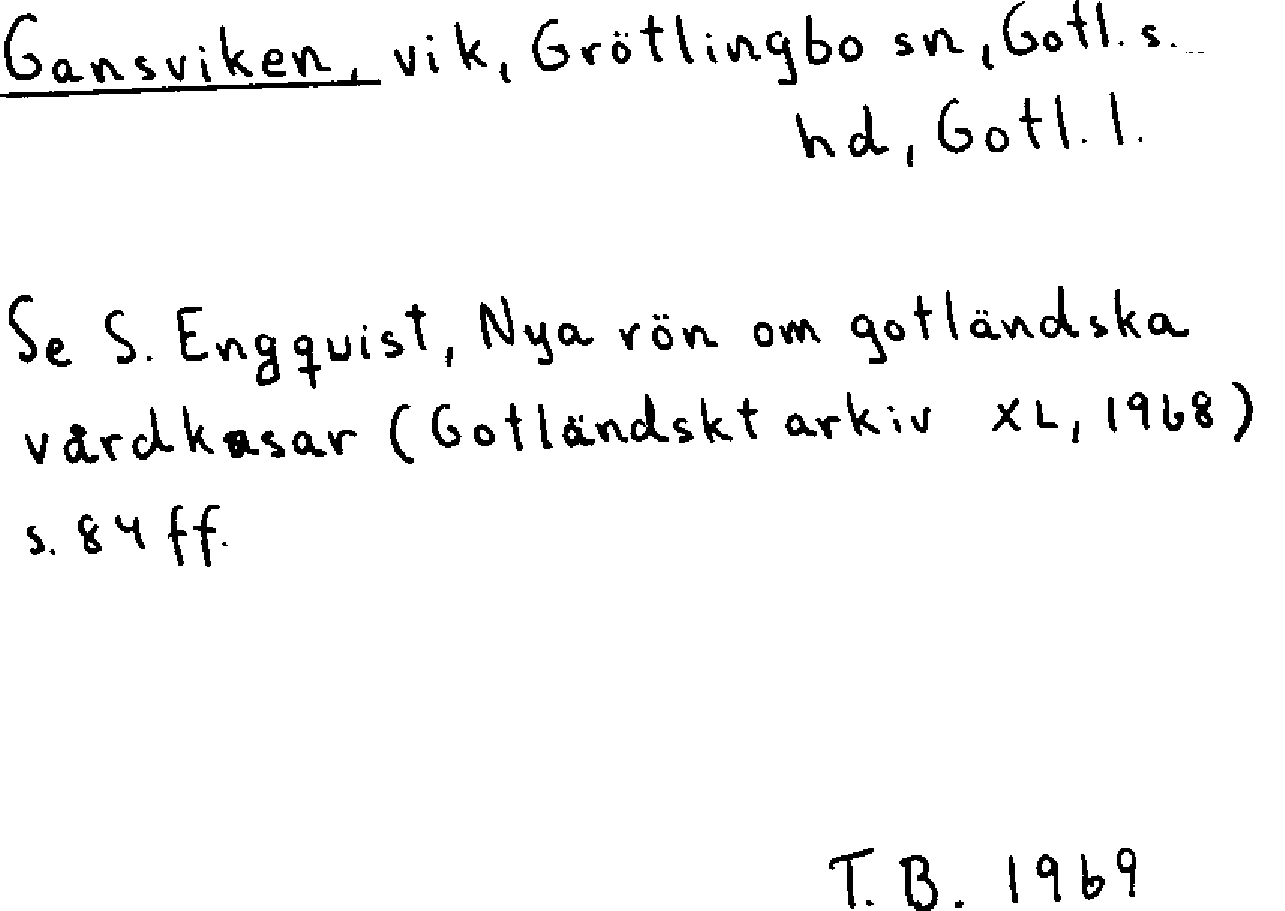 Gansviken, vik, Grötlingbo sn, Gotl. s.
hd, Gotl. l.
Se S. Engquist, Nya rön om gotländska
vårdkasar (Gotländskt arkiv XL, 1968)
s. 84 ff.
T. B. 1969